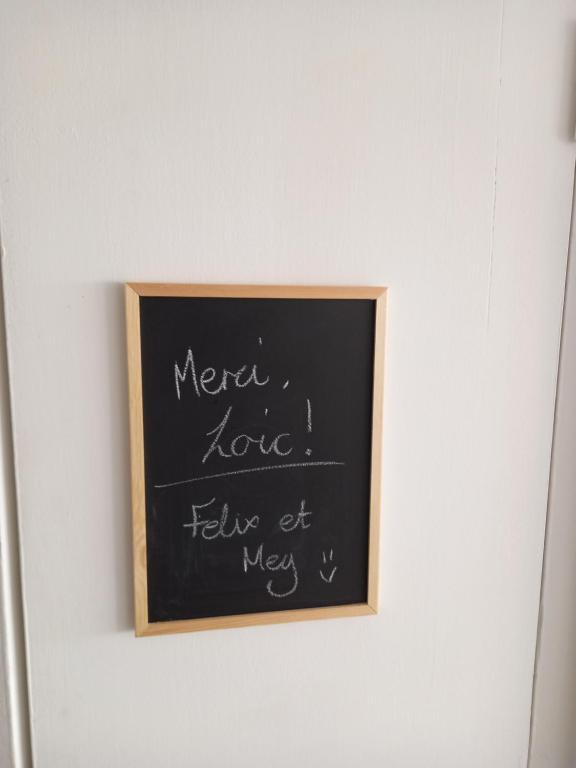 Merci,
Loic!
Felix et
Mey